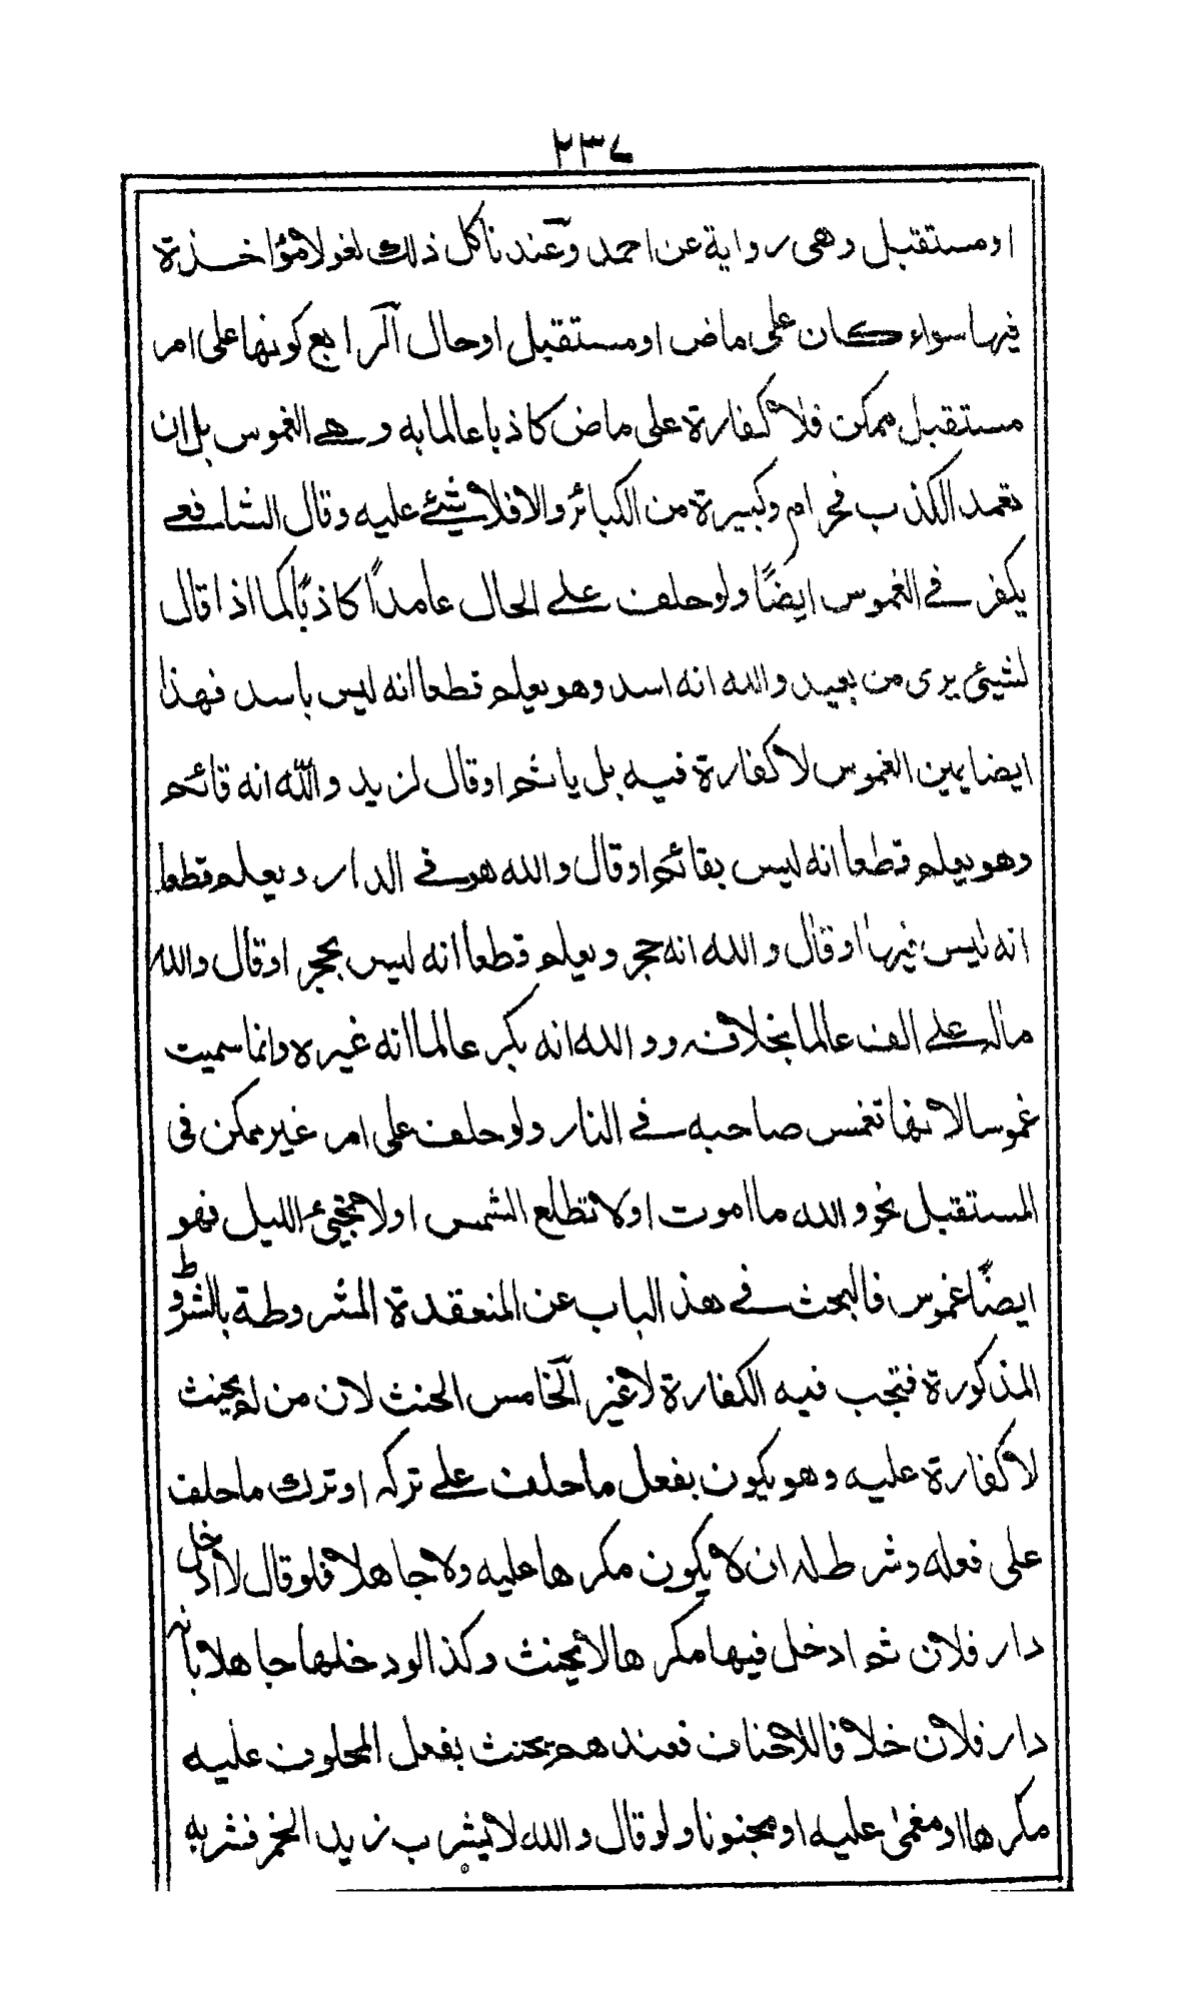 ٢٣٧
او مستقبل وهى رواية عن احمد وعندنا كل ذلك لغو لا مؤاخذة
فيها سواء كان على ماض او مستقبل او حال الرابع كونها على امر
مستقبل ممكن فلا كفارة على ماض كاذبا عالما به وهے الغموس بل ان
تعمد الكذب فحرام وكبيرة من الكبائر والا فلا شيئے عليه وقال الشافعے
يكفر فے الغموس ايضًا ولو حلف علے الحال عامدًا كاذبًا كما اذا قال
لشيئ يرى من بعيد والله انه اسد وهو يعلم قطعا انه ليس باسد فهذا
ايضا يمين الغموس لا كفارة فيه بل ياثم او قال لزيد والله انه قائم
وهو يعلم قطعا انه ليس بقائم او قال والله هو فے الدار ويعلم قطعا
انه ليس فيها او قال والله انه حجر ويعلم قطعا انه ليس بحجر او قال والله
ماله علے الف عالما بخلافه ووالله انه بكر عالما انه غيره وانما سميت
غموسا لانها تغمس صاحبه فے النار ولو حلف على امر غير ممكن فى
المستقبل نحو والله ما اموت او لا تطلع الشمس او لا يجيئ الليل فهو
ايضًا غموس فالبحث فے هذ الباب عن المنعقدة المشروطة بالشروط
المذكورة فتجب فيه الكفارة لا غير الخامس الحنث لان من لم يحنث
لا كفارة عليه وهو يكون بفعل ما حلف علے تركه او ترك ما حلف
على فعله وشرط له ان لا يكون مكرها عليه ولا جاهلا فلو قال لا ادخل
دار فلان ثم ادخل فيها مكرها لا يحنث وكذا لو دخلها جاهلا بانه
دار فلان خلافا للاحناف فعندهم يحنث بفعل المحلوف عليه
مكرها او مغمىٰ عليه او مجنونا ولو قال والله لا يشرب زيد الخمر فشربه